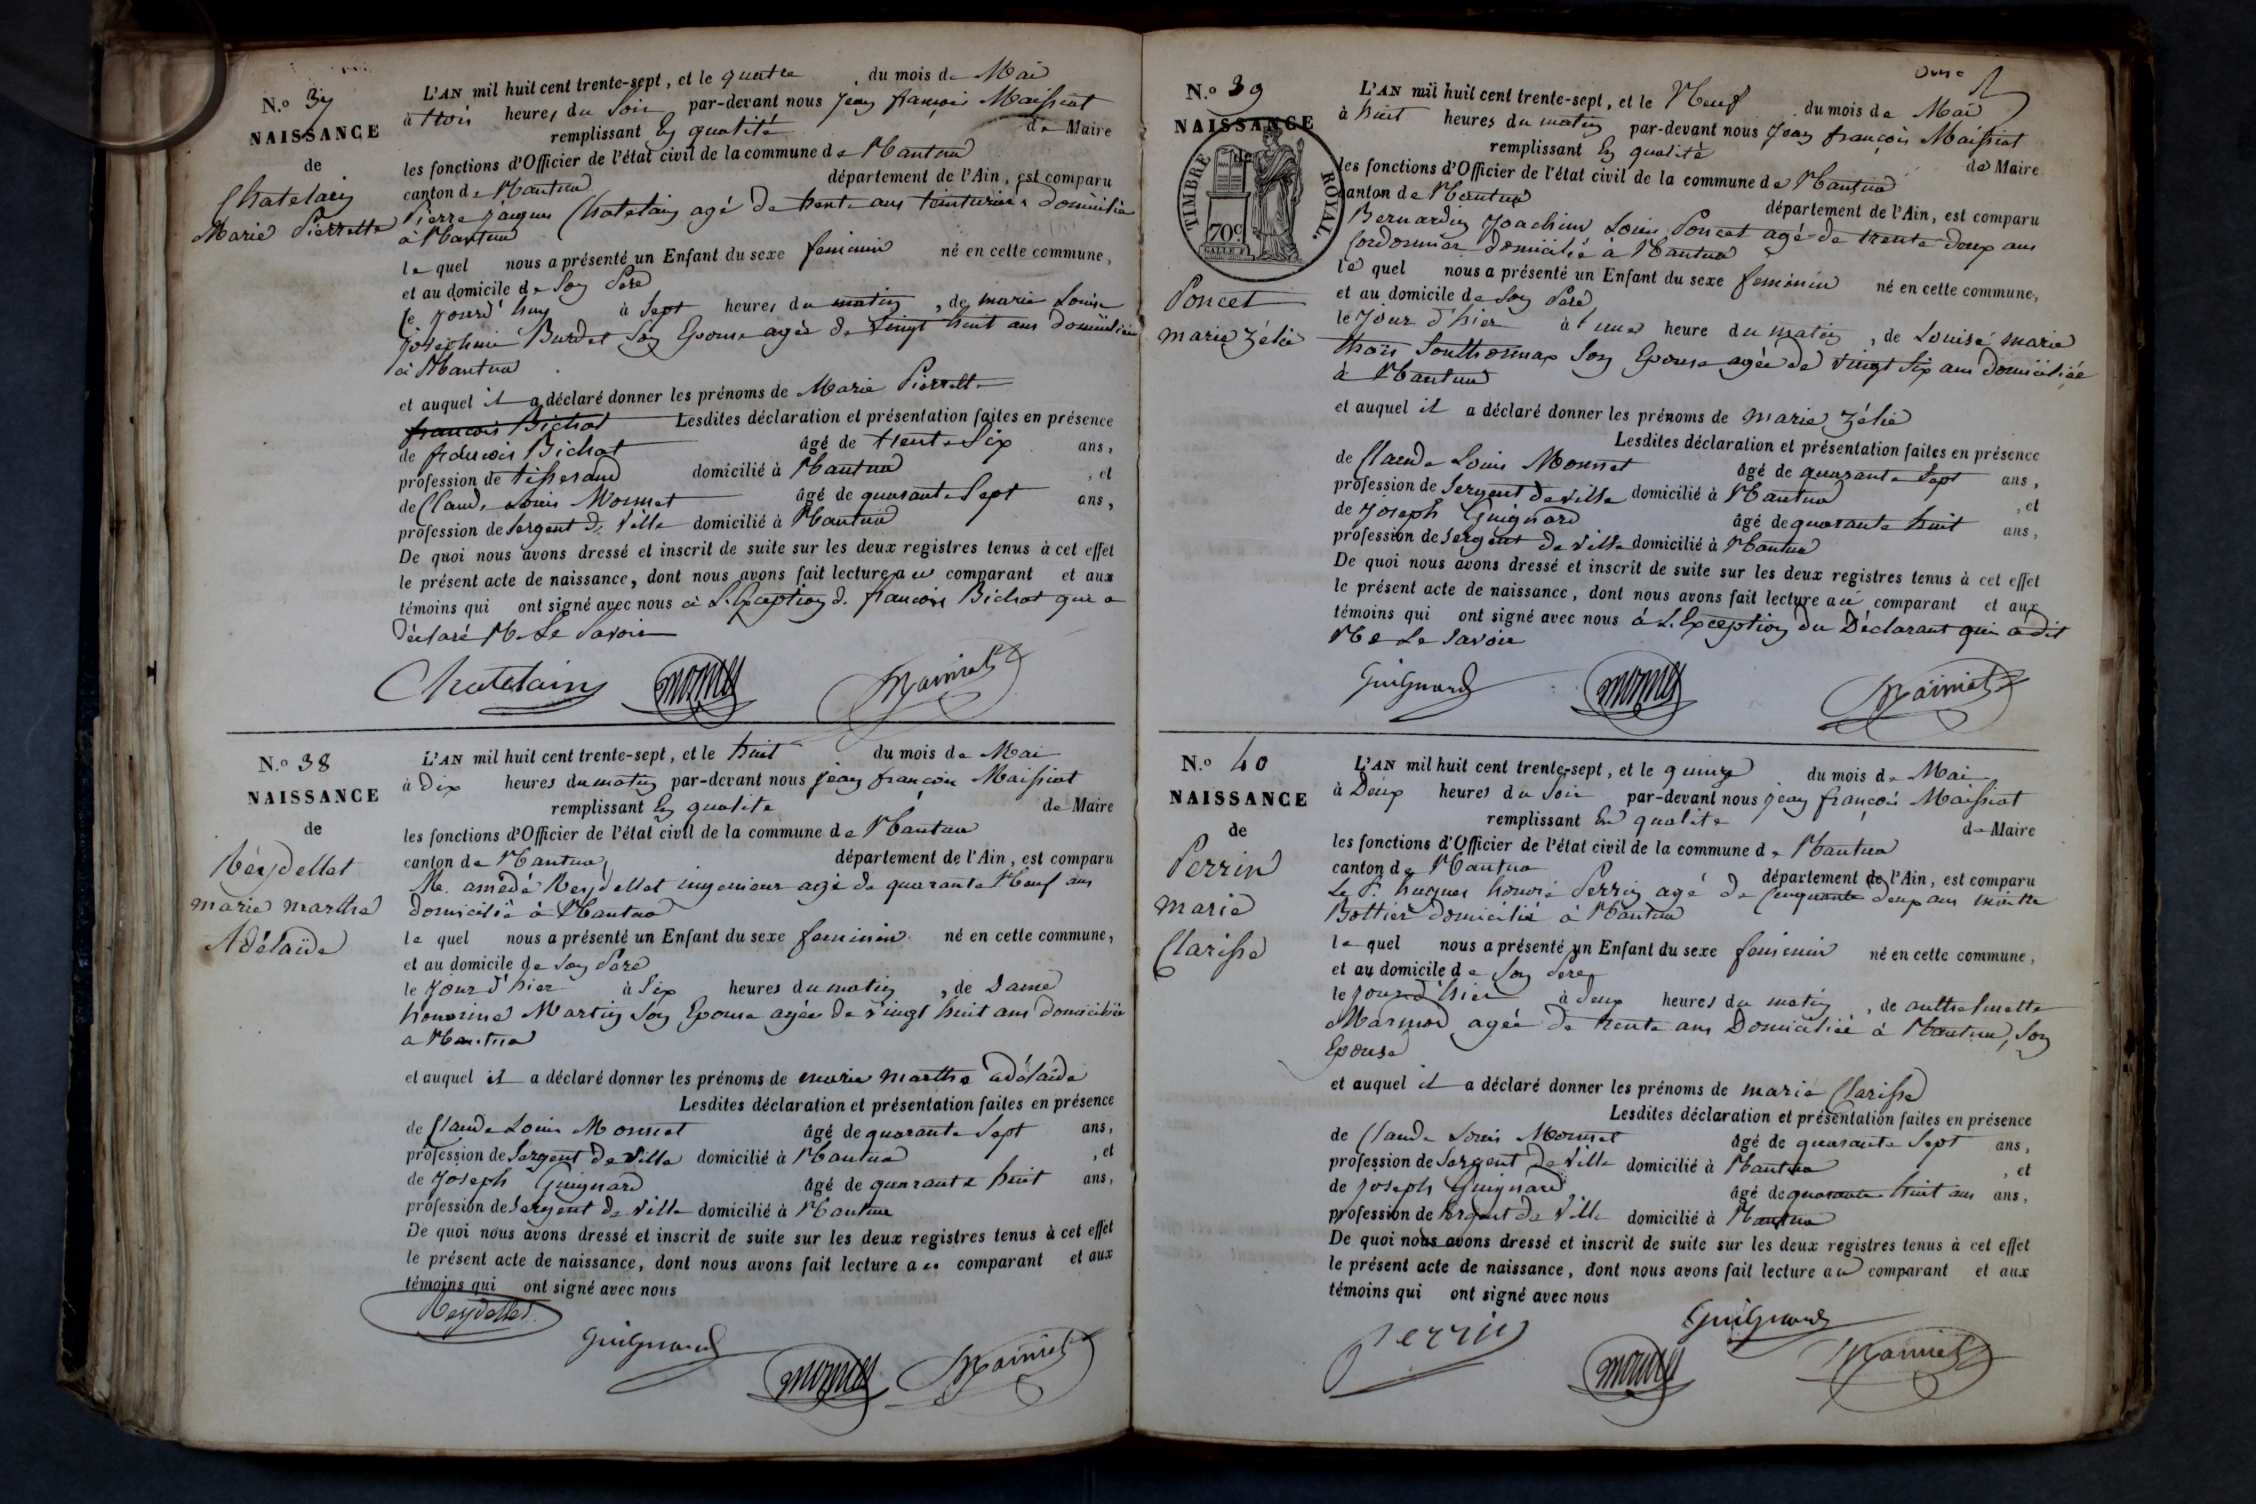 N.o 37
NAISSANCE
de
Chatelain
Marie Pierrette
L'AN mil huit cent trente-sept, et le quatre du mois de Mai
à trois heures du Soir par-devant nous jean françois Maissiat
remplissant En qualité de Maire
les fonctions d'Officier de l'état civil de la commune de Nantua
canton de Nantua département de l'Ain, est comparu
Pierre jacques Chatelain agé de trente ans teinturier domicilié
à Nantua
le quel nous a présenté un Enfant du sexe feminin né en cette commune,
et au domicile de Son Pere
le jourd'huy à Sept heures du matin, de marie Louise
joséphine Burdet Son Epouse agée de vingt huit ans domiciliée
à Nantua
et auquel il a déclaré donner les prénoms de Marie Pierrette
françois Bichat Lesdites déclaration et présentation faites en présence
de françois Bichat âgé de trente Six ans,
profession de tisserand domicilié à Nantua, et
de Claude Louis Monnet âgé de quarante Sept ans,
profession de Sergent de Ville domicilié à Nantua
De quoi nous avons dressé et inscrit de suite sur les deux registres tenus à cet effet
le présent acte de naissance, dont nous avons fait lecture au comparant et aux
témoins qui ont signé avec nous à L'Exception de françois Bichat qui a
déclaré Ne Le Savoir
Chatelain Monnet Maissiat
N.o 38
NAISSANCE
de
Reydellet
marie marthe
Adélaïde
L'AN mil huit cent trente-sept, et le huit du mois de Mai
à Dix heures du matin par-devant nous jean françois Maissiat
remplissant En qualité de Maire
les fonctions d'Officier de l'état civil de la commune de Nantua
canton de Nantua département de l'Ain, est comparu
Mr. amédé Reydellet ingenieur agé de quarante Neuf ans
domicilié à Nantua
le quel nous a présenté un Enfant du sexe feminin né en cette commune,
et au domicile de Son Pere
le jour d'hier à Six heures du matin, de Dame
honorine Martin Son Epouse agée de vingt huit ans domiciliée
a Nantua
et auquel il a déclaré donner les prénoms de marie marthe adélaïde
Lesdites déclaration et présentation faites en présence
de Claude Louis Monnet âgé de quarante Sept ans,
profession de Sergent de Ville domicilié à Nantua, et
de Joseph Guignard âgé de quarante huit ans,
profession de Sergent de Ville domicilié à Nantua
De quoi nous avons dressé et inscrit de suite sur les deux registres tenus à cet effet
le présent acte de naissance, dont nous avons fait lecture au comparant et aux
témoins qui ont signé avec nous
Reydellet Guignard Monnet Maissiat
onze
N.o 39
NAISSANCE
de
TIMBRE ROYAL.
70c
Poncet
marie Zélie
L'AN mil huit cent trente-sept, et le Neuf du mois de Mai
à huit heures du matin par-devant nous Jean françois Maissiat
remplissant En qualité de Maire
les fonctions d'Officier de l'état civil de la commune de Nantua
canton de Nantua département de l'Ain, est comparu
Bernardin Joachim Louis Poncet agé de trente deux ans
Cordonnier domicilié à Nantua
le quel nous a présenté un Enfant du sexe feminin né en cette commune,
et au domicile de Son Pere
le Jour d'hier à l'une heure du matin, de Louise marie
Southonnax Son Epouse agée de vingt Six ans domiciliée
à Nantua
et auquel il a déclaré donner les prénoms de marie Zélie
Lesdites déclaration et présentation faites en présence
de Claude Louis Monnet âgé de quarante Sept ans,
profession de Sergent de ville domicilié à Nantua, et
de Joseph Guignard âgé de quarante huit ans,
profession de Sergent de Ville domicilié à Nantua
De quoi nous avons dressé et inscrit de suite sur les deux registres tenus à cet effet
le présent acte de naissance, dont nous avons fait lecture au comparant et aux
témoins qui ont signé avec nous á L'Exception du Déclarant qui a dit
Ne Le Savoir
Guignard Monnet Maissiat
N.o 40
NAISSANCE
de
Perrin
marie
Clarisse
L'AN mil huit cent trente-sept, et le quinze du mois de Mai
à Deux heures du Soir par-devant nous jean françois Maissiat
remplissant En qualité de Maire
les fonctions d'Officier de l'état civil de la commune de Nantua
canton de Nantua département de l'Ain, est comparu
Le S. hugues honoré Perrin agé de Cinquante deux ans maitre
Bottier domicilié à Nantua
le quel nous a présenté un Enfant du sexe feminin né en cette commune,
et au domicile de Son Pere
le jour d'hier à deux heures du matin, de
Marmod agée de trente ans Domiciliée à Nantua, Son
Epouse
et auquel il a déclaré donner les prénoms de marie Clarisse
Lesdites déclaration et présentation faites en présence
de Claude Louis Monnet âgé de quarante Sept ans,
profession de Sergent de Ville domicilié à Nantua, et
de joseph Guignard âgé de quarante huit ans ans,
profession de Sergent de Ville domicilié à Nantua
De quoi nous avons dressé et inscrit de suite sur les deux registres tenus à cet effet
le présent acte de naissance, dont nous avons fait lecture au comparant et aux
témoins qui ont signé avec nous
Perrin Guignard Monnet Maissiat